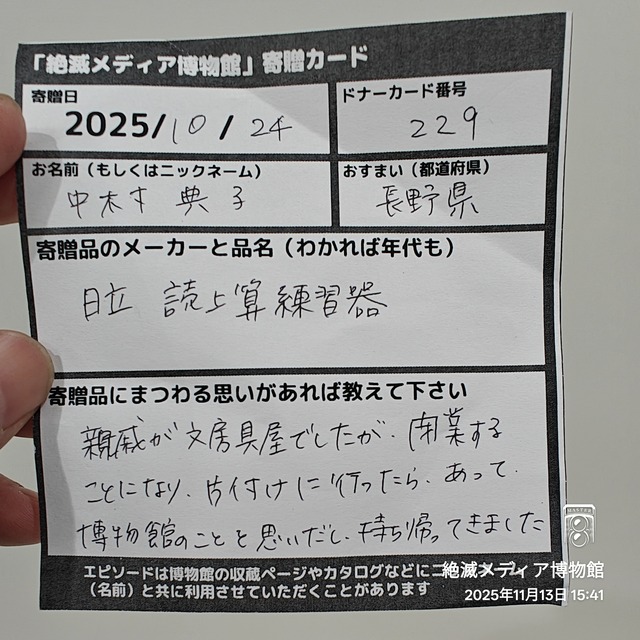 「絶滅メディア博物館」寄贈カード
寄贈日
2025/10/24
ドナーカード番号
229
お名前（もしくはニックネーム）
中木寸 典子
おすまい（都道府県）
長野県
寄贈品のメーカーと品名（わかれば年代も）
日立 読上算練習器
寄贈品にまつわる思いがあれば教えて下さい
親戚が文房具屋でしたが、閉業する
ことになり、片付けに行ったら、あって、
博物館のことを思いだし、持ち帰ってきました
エピソードは博物館の収蔵ページやカタログなどに
（名前）と共に利用させていただくことがあります
MASTER
絶滅メディア博物館
2025年11月13日 15:41